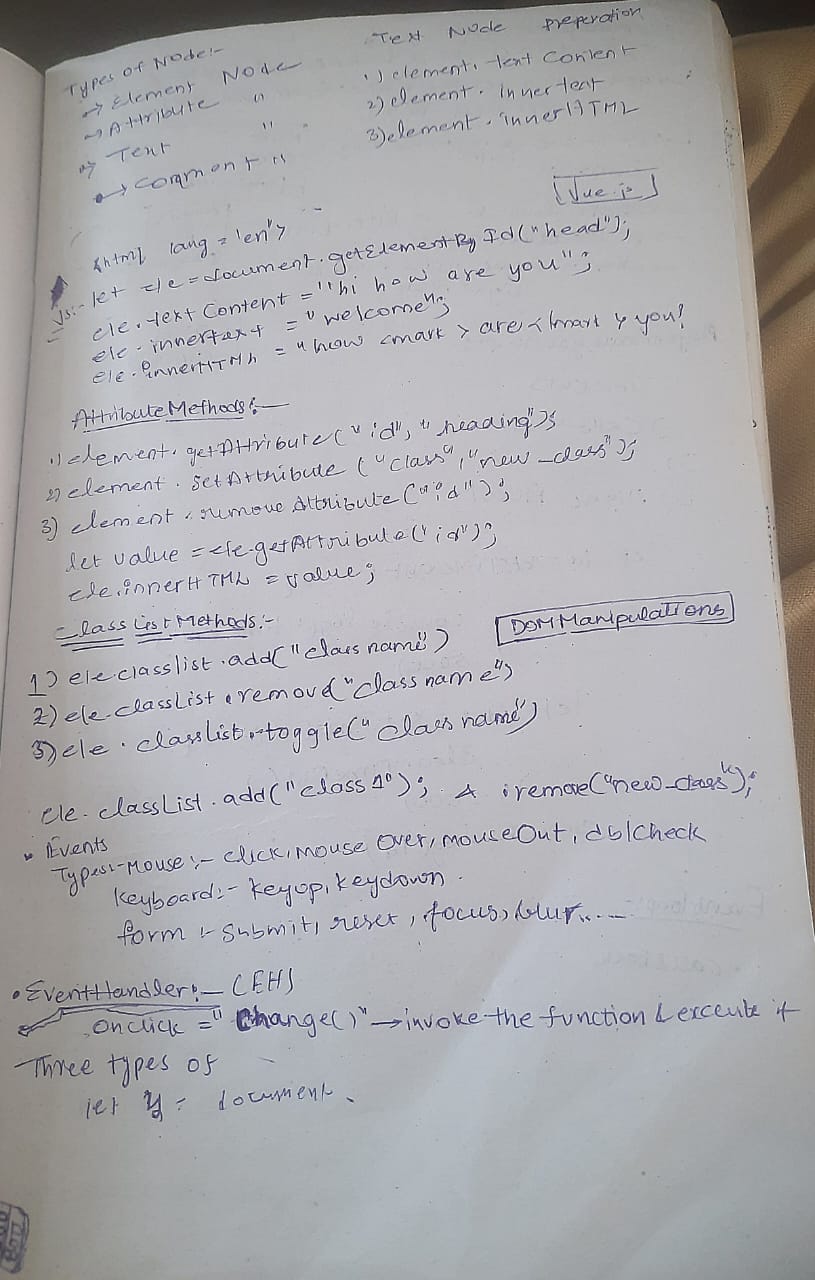 Types of Node:-
→ Element Node
→ Attribute "
→ Text "
→ Comment "
Text Node Preperation
1) element. text Content
2) element. inner text
3) element. innerHTML
Vue.js
<html lang = 'en'>
Js:- let ele = document.getElementById("head");
ele.text Content = "hi how are you";
ele.innertext = "welcome";
ele.innerHTML = "how <mark> are </mark> you!
Attribute Methods:-
1) element. getAttribute("id", "heading");
2) element. Set Attribute ("class", "new_class");
3) element. remove Attribute("id");
let value = ele.getAttribute("id");
ele.innerHTML = value;
Class List Methods:-
DOM Manipulations
1) ele.classlist.add("class name")
2) ele.classList.remove("class name")
3) ele.classList.toggle("class name")
ele.classList.add("class1"); & .remove("new_class");
• Events
Types:- Mouse:- click, mouse Over, mouseOut, dblCheck
Keyboard:- Keyup, keydown.
form:- Submit, reset, focus, blur.....
• EventHandler:- (EH)
onclick = "Change()" → invoke the function & exceute it
Three types of
let y = document.